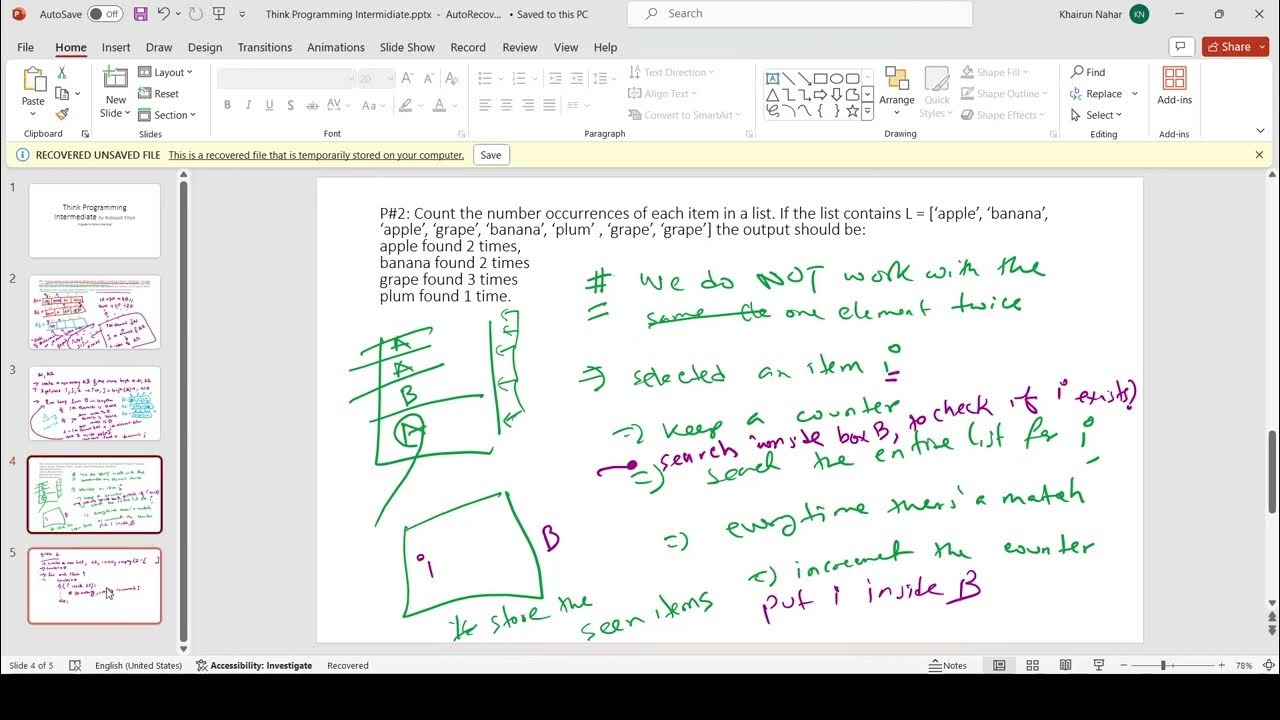 AutoSave Off Think Programming Intermidiate.pptx - AutoRecov... • Saved to this PC Search Khairun Nahar KN
File Home Insert Draw Design Transitions Animations Slide Show Record Review View Help Share
Paste New Slide Layout Reset Section 20 Text Direction Align Text Convert to SmartArt Arrange Quick Styles Shape Fill Shape Outline Shape Effects Find Replace Select Add-ins
Clipboard Slides Font Paragraph Drawing Editing Add-ins
RECOVERED UNSAVED FILE This is a recovered file that is temporarily stored on your computer. Save
1
Think Programming
Intermediate by Rubayat Khan
2
3
4
5
P#2: Count the number occurrences of each item in a list. If the list contains L = [‘apple’, ‘banana’,
‘apple’, ‘grape’, ‘banana’, ‘plum’ , ‘grape’, ‘grape’] the output should be:
apple found 2 times,
banana found 2 times
grape found 3 times
plum found 1 time.
# we do NOT work with the
same one element twice
A
A
B
A
=> selected an item i
=> keep a counter
search inside box B, to check if i exists?
=> search the entire list for i
=> everytime there's a match
=> increment the counter
put i inside B
i
B
* store the
seen items
Slide 4 of 5 English (United States) Accessibility: Investigate Recovered Notes 78%